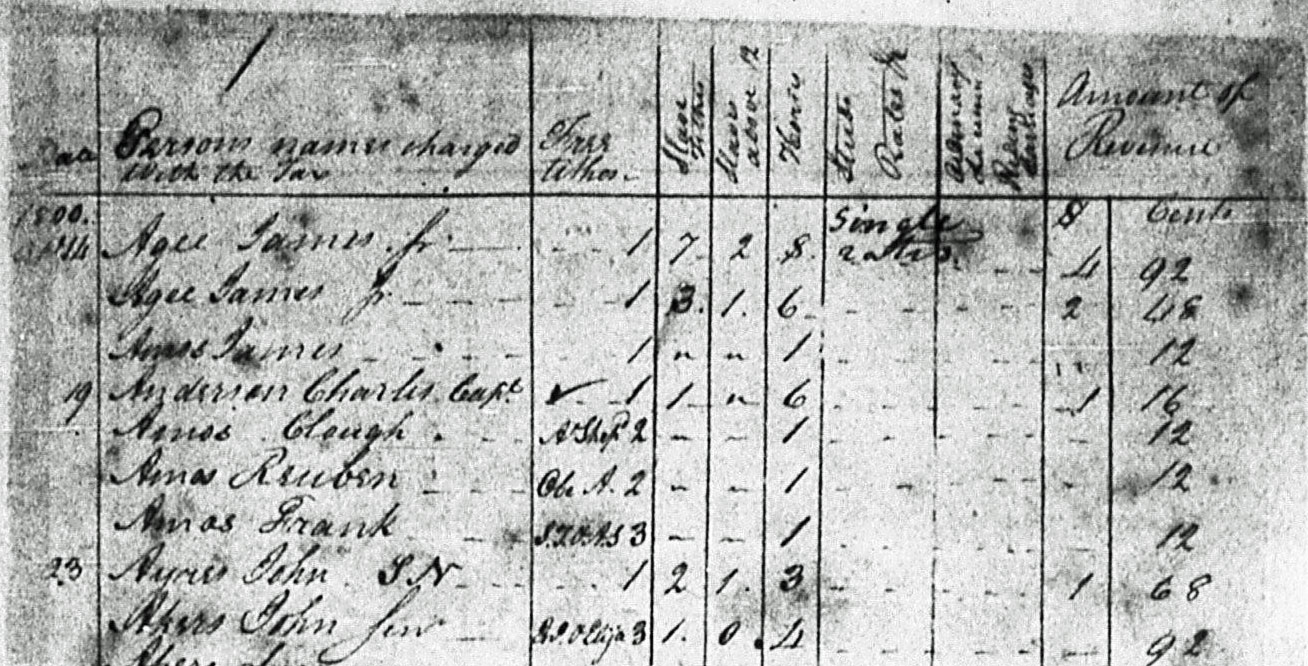 1
Persons names charged with the Tax Free tithes Slave tithes Slaves above 12 Horses Studs Rates &c Ordinary License Riding Carriages Amount of Revenue
1800. Single $ Cents
14 Agee James Sr 1 7 2 8 rates 4 92
Agee James Jr 1 3. 1. 6 2 48
Amos James 1 " " 1 12
19 Anderson Charles Capt. 1 1 " 6 1 16
Amos Clough 2 - - 1 12
Amos Reuben Obe A. 2 - - 1 12
Amos Frank 3 - - 1 12
23 Ayres John SN 1 2 1. 3 1 68
Akers John Senr 3 1. 0 4 92